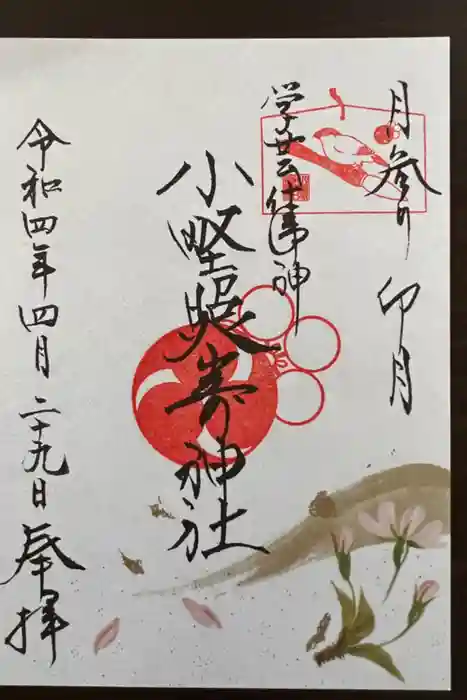 月参り 卯月
学芸仕事神
小野照崎神社
令和四年四月二十九日 奉拝